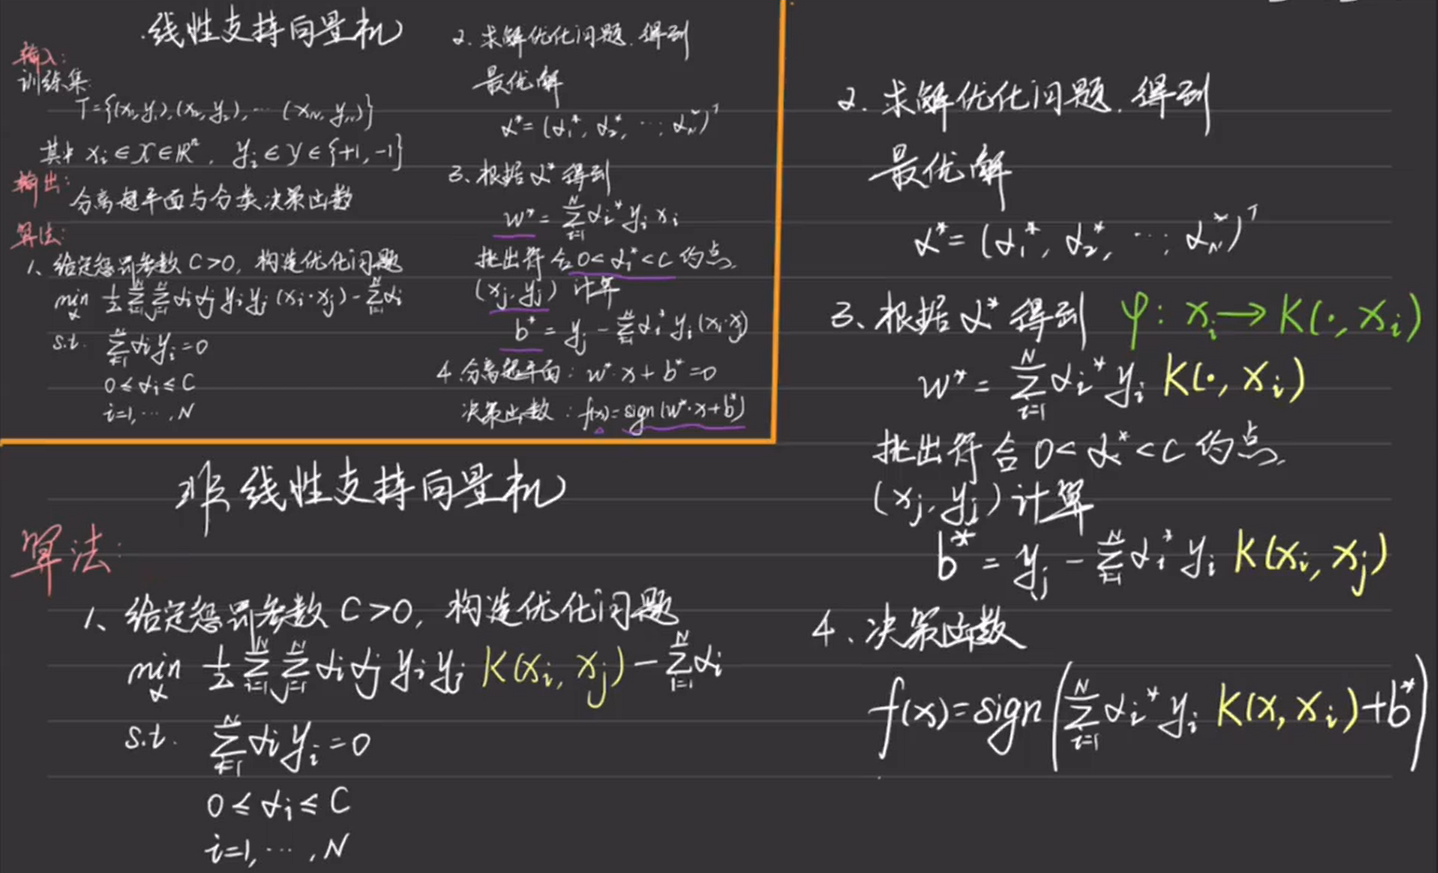 线性支持向量机
输入:
训练集:
T={(x₁,y₁),(x₂,y₂),…(x_N,y_N)}
其中 xᵢ∈X∈ℝⁿ, yᵢ∈Y∈{+1,-1}
输出:
分离超平面与分类决策函数
算法:
1、给定惩罚参数 C>0, 构造优化问题
min_α ½ Σ_{i=1}^N Σ_{j=1}^N αᵢαⱼyᵢyⱼ(xᵢ·xⱼ) - Σ_{i=1}^N αᵢ
s.t. Σ_{i=1}^N αᵢyᵢ=0
0≤αᵢ≤C
i=1,…,N
2. 求解优化问题. 得到
最优解
α*=(α₁*, α₂*, …, α_N*)ᵀ
3. 根据 α* 得到
w*=Σ_{i=1}^N αᵢ*yᵢxᵢ
挑出符合 0<αᵢ*<C 的点,
(xⱼ,yⱼ) 计算
b*=yⱼ-Σ_{i=1}^N αᵢ*yᵢ(xᵢ·xⱼ)
4.分离超平面: w*·x+b*=0
决策函数: f(x)=sign(w*·x+b*)
非线性支持向量机
算法:
1、给定惩罚参数 C>0, 构造优化问题
min_α ½ Σ_{i=1}^N Σ_{j=1}^N αᵢαⱼyᵢyⱼ K(xᵢ, xⱼ) - Σ_{i=1}^N αᵢ
s.t. Σ_{i=1}^N αᵢyᵢ=0
0≤αᵢ≤C
i=1,…,N
2. 求解优化问题. 得到
最优解
α*=(α₁*, α₂*, …, α_N*)ᵀ
3. 根据 α* 得到 φ: xᵢ→K(·, xᵢ)
w*=Σ_{i=1}^N αᵢ*yᵢ K(·, xᵢ)
挑出符合 0<α*<C 的点,
(xⱼ,yⱼ) 计算
b*=yⱼ-Σ_{i=1}^N αᵢ*yᵢ K(xᵢ, xⱼ)
4、决策函数
f(x)=sign(Σ_{i=1}^N αᵢ*yᵢ K(x, xᵢ)+b*)